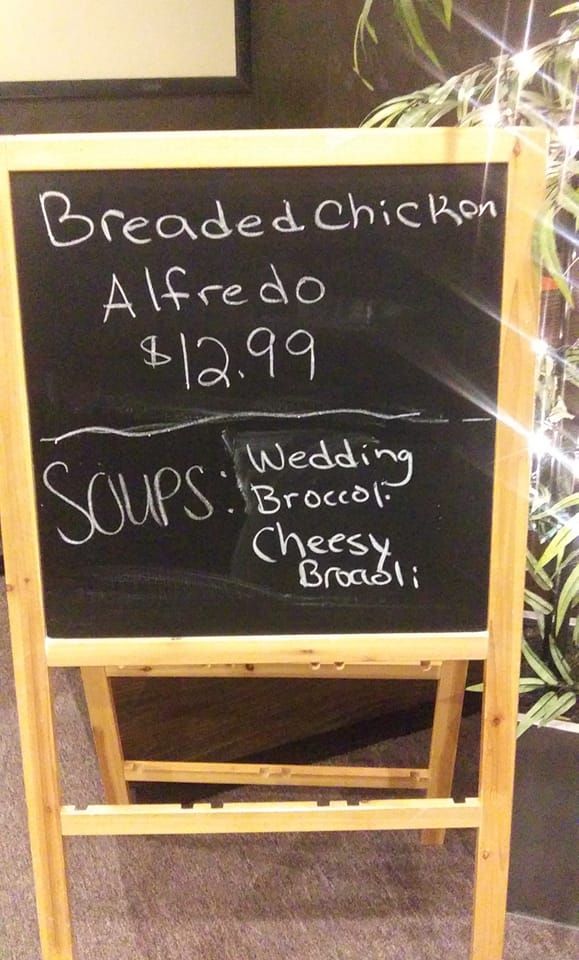 Breaded Chicken
Alfredo
$12.99
SOUPS: Wedding
Broccoli
Cheesy
Broccoli